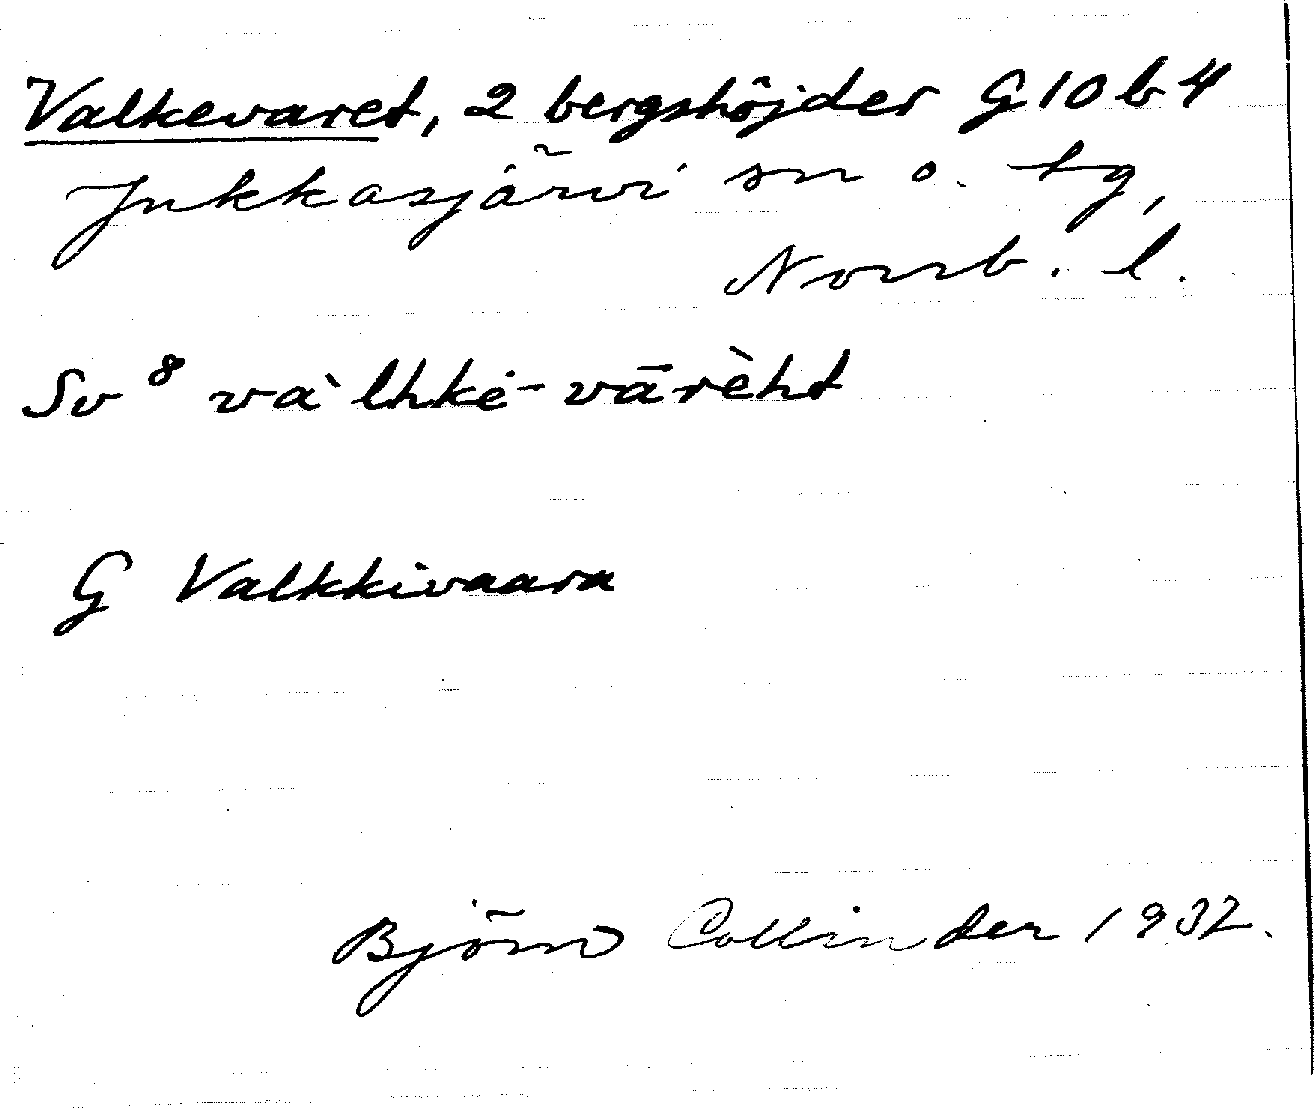 Valkevaret, 2 bergshöjder G 10 b 4
Jukkasjärvi sn o. tg,
Norrb. l.
Sv 8 và`lhkė-vārèht
G Valkkivaara
Björn Collinder 1932.